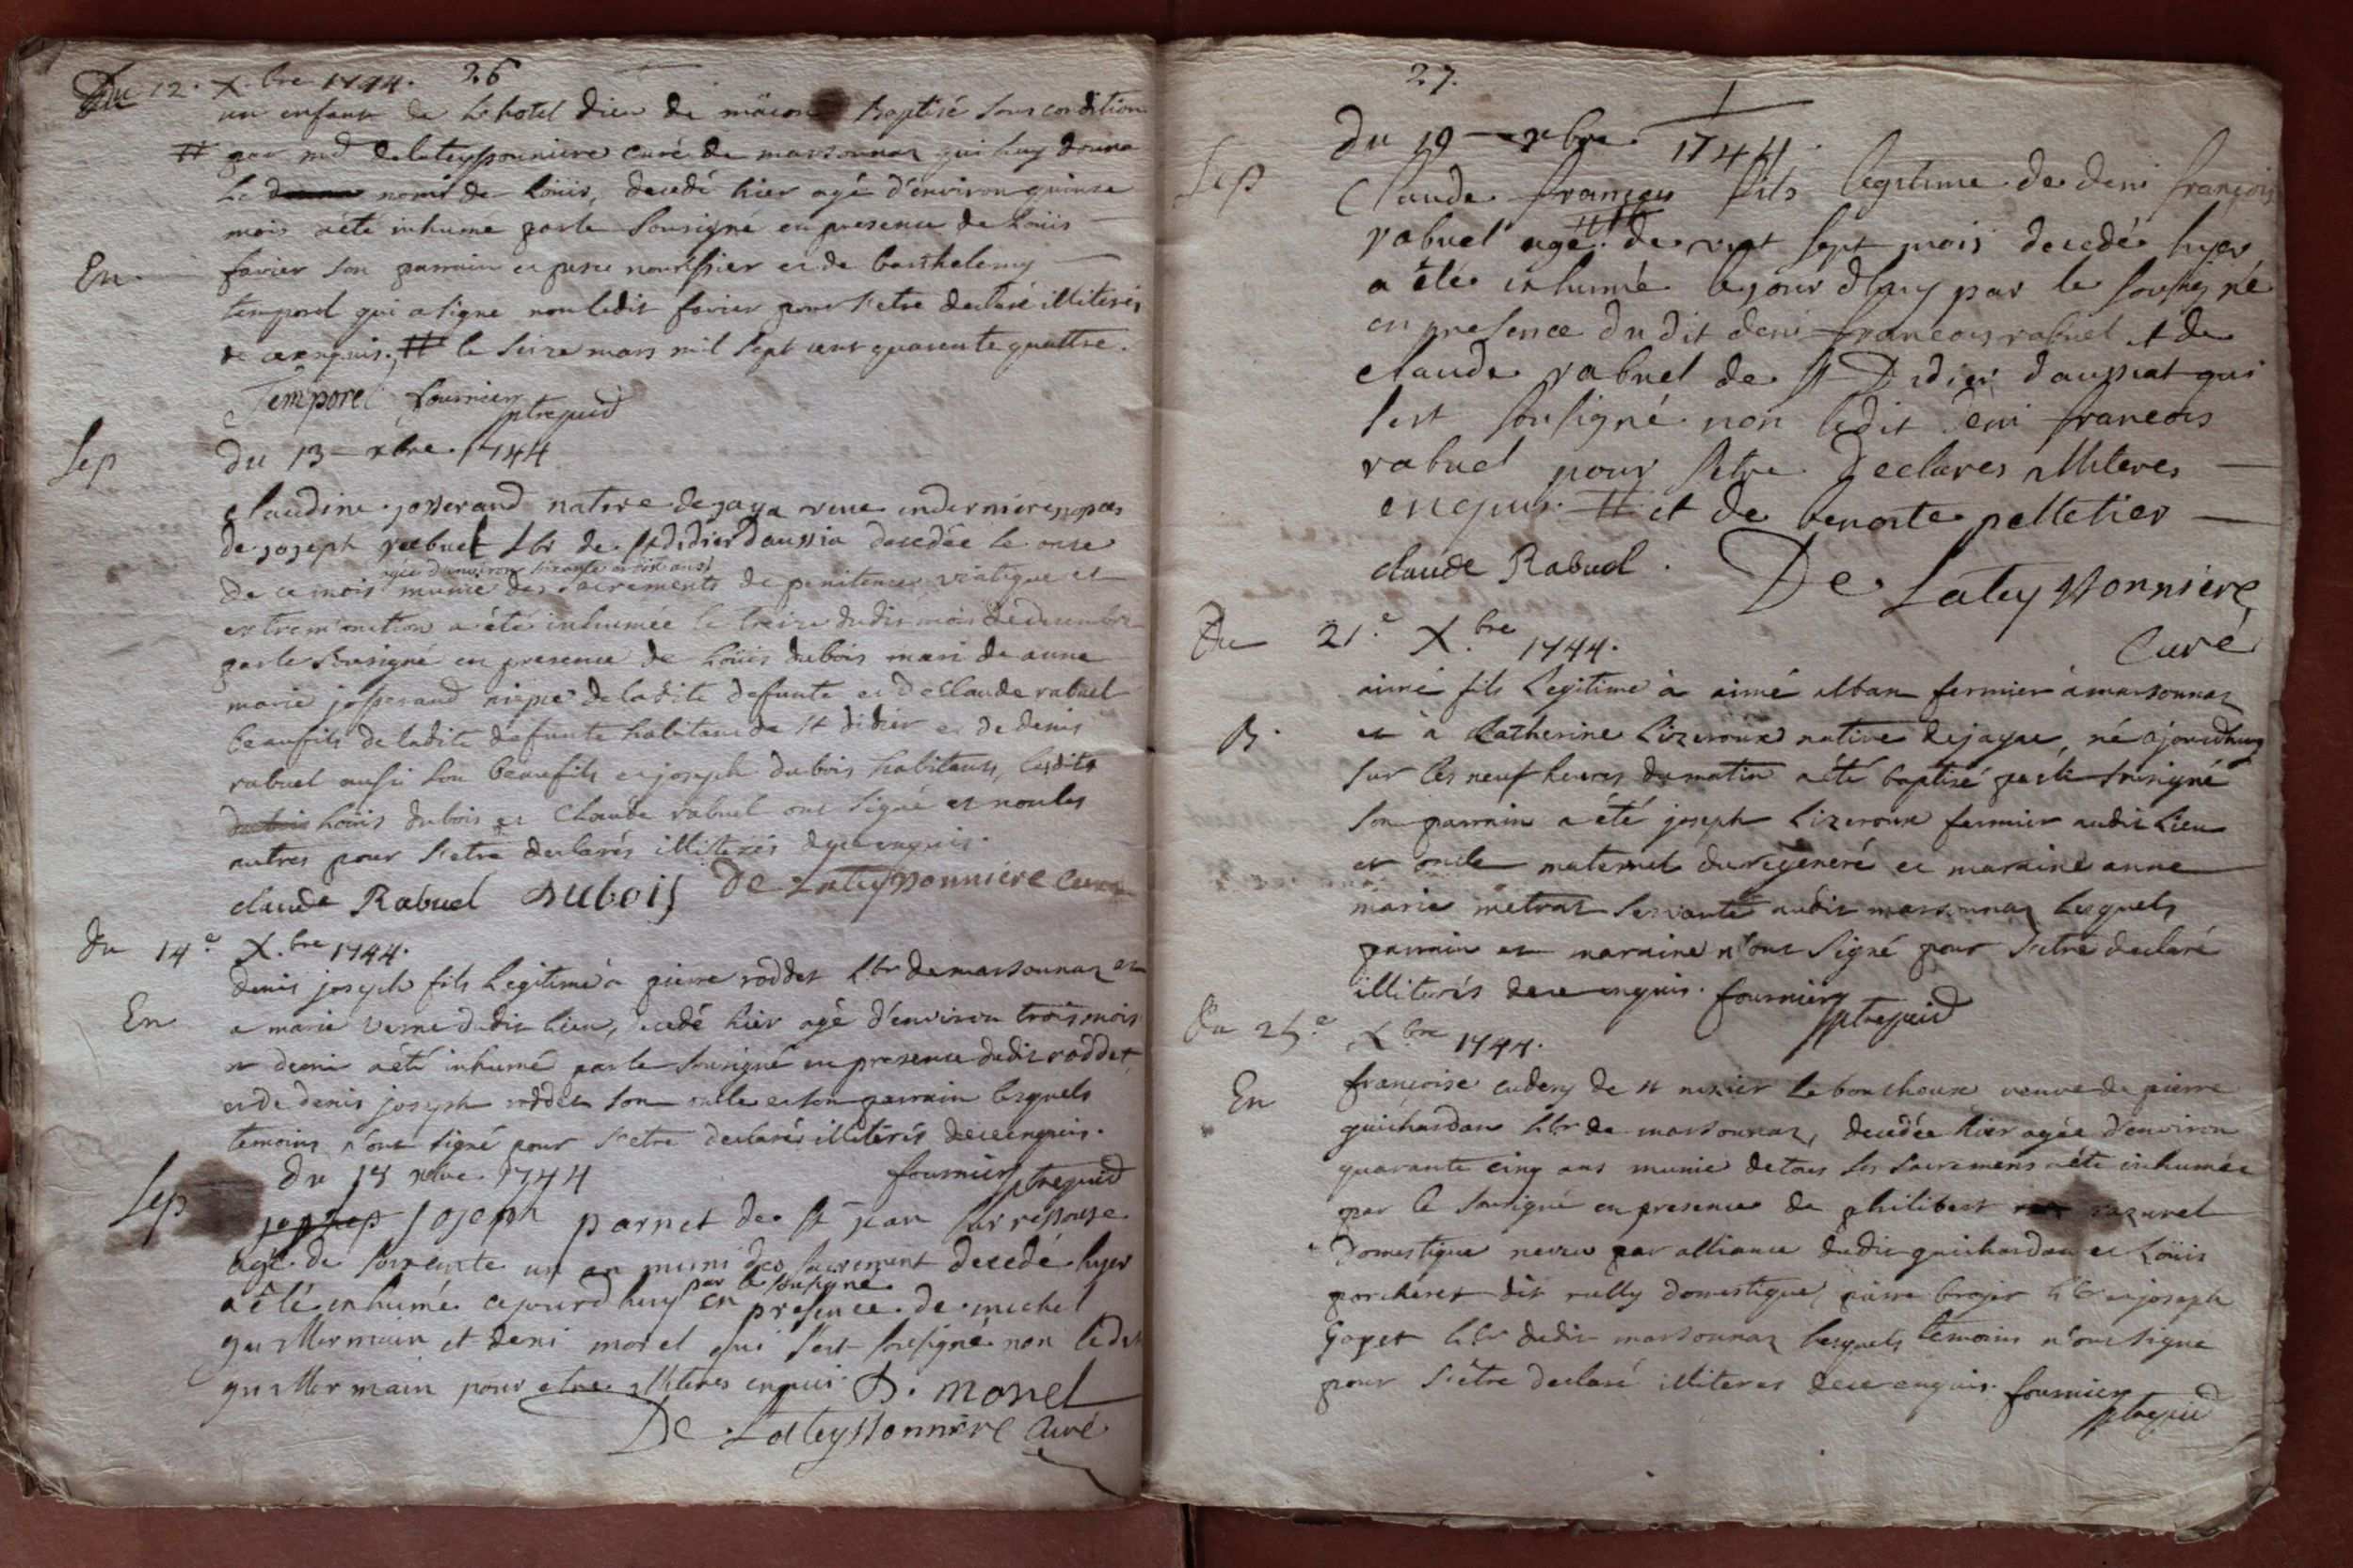 26
Du 12. X.bre 1744.
un enfant de L'hotel dieu de mâcon Baptisé sous condition
# par md delateyssonniere curé de marsonnaz qui luy donna
Le nom de Loüis, decedé hier agé d'environ quinze
mois a été inhumé par le sousigné en presence de Loüis
En. favier son parrain et pere nourissier et de barthelemy
temporel qui a signé non ledit favier pour s'etre declaré illiteré
de ce enquis, # le seize mars mil sept cent quarente quattre.
Temporel fournier ptre
Sep du 13 xbre 1744
Claudine josserand native de jaya veuve en derniere nopces
de joseph rabuel Lbr de st didier d'aussia decedée le onze
agée d'environ soixante et dix ans
de ce mois munie des sacrements de penitence viatique et
extrem'onction a été inhumée le treize dudit mois de decembre
par le sousigné en presence de Loüis dubois mari de anne
marie josserand niepce de ladite defunte et de Claude rabuel
beaufils de ladite defunte habitans de st didier et de denis
rabuel aussi son beaufils et joseph dubois habitans, lesdits
Loüis dubois et Claude rabuel ont signé et non les
autres pour s'etre declarés illiterés de ce enquis.
claude Rabuel Dubois De Lateyssonniere Curé
Du 14e X.bre 1744.
denis joseph fils Legitime à pierre roddet Lbr de marsonnaz et
En a marie verne dudit lieu, decedé hier agé d'environ trois mois
et demi a été inhumé par le sousigné en presence dudit roddet
et de denis joseph roddet son oncle et son parrain lesquels
temoins n'ont signé pour s'etre declarés illiterés de ce enquis.
du 18 xbre 1744 fournier ptre
Sep joseph parnet de st jean sur ressouze
agé de soixente un an muni des sacrement decedé hyer
par le sousigne
a été inhumé cejourd'huy en presence de michel
guillermain et deni morel qui s'est sousigné non ledit
guillermain pour etre illiteres enquis. D. morel
De Lateyssonniere Curé
27.
Du 19 xbre 1744
Sep Claude françois fils legitime de deni françois
rabuel agé de vint sept mois decedé hyer
a été inhumé cejourd'huy par le sousigné
en presence du dit deni francois rabuel et de
claude rabuel de st Didier d'aussiat qui
s'est sousigné non ledit deni francois
rabuel pour s'etre declares illiteres
enquis # et de benoite pelletier
claude Rabuel. De Lateyssonniere
Curé
Du 21e X.bre 1744.
aimé fils Legitime à aimé alban fermier à marsonnaz
B. et à Catherine Lizeroux native de jayac, né ajourd'huy
sur les neuf heures du matin a été baptisé par le sousigné
son parrain a été joseph Lizeroux fermier audit lieu
et oncle maternel du regeneré et maraine anne
marie metraz servante audit marsonnaz lesquels
parrain et maraine n'ont signé pour s'etre declaré
illiterés de ce enquis. fournier ptre
Du 25e X.bre 1744.
En françoise cudery de st nizier le bouchoux veuve de pierre
guichardan Lbr de marsonnaz, decedée hier agée d'environ
quarante cinq ans munie de tous les sacremens a été inhumée
par le sousigné en presence de philibert razurel
domestique neveu par alliance dudit guichardan et Loüis
porcheret dit rully domestique, pierre broyer Lbr et joseph
goyet Lbr dudit marsonnaz lesquels temoins n'ont signé
pour s'être declaré illiteres de ce enquis. fournier ptre